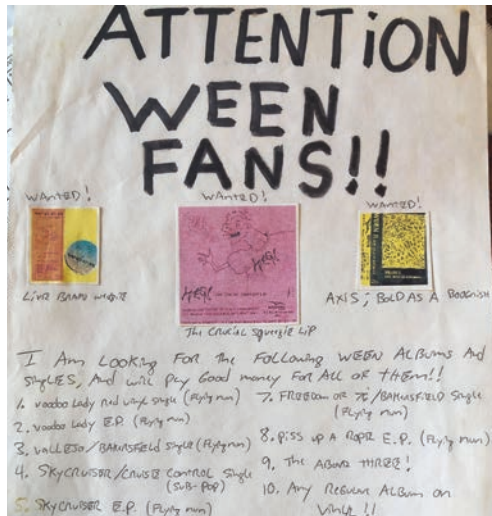 ATTENTION
WEEN
FANS!!
WANTED!
WANTED!
WANTED!
HEY!
HEY!
LIVE BRAIN WEDGIE
The Crucial Squeegie Lip
AXIS; BOLD AS A BOOGNISH
I AM LOOKING FOR The FOLLOWING WEEN ALBUMS And
SINGLES, And will PAY Good money FOR ALL OF THEM!!
1. Voodoo Lady red vinyl single (Flying nun)
2. Voodoo Lady E.P. (Flying nun)
3. VALLEJO/BAKERSFIELD single (Flying nun)
4. SKYCRUISER/CRUISE CONTROL Single
(SUB-POP)
5. SKYCRUISER E.P. (Flying nun)
7. FREEDOM OF 76/BAKERSFIELD Single
(Flying nun)
8. PISS UP A ROPE E.P. (Flying nun)
9. The ABOVE THREE!
10. Any REGULAR ALBUM on
VINYL!!